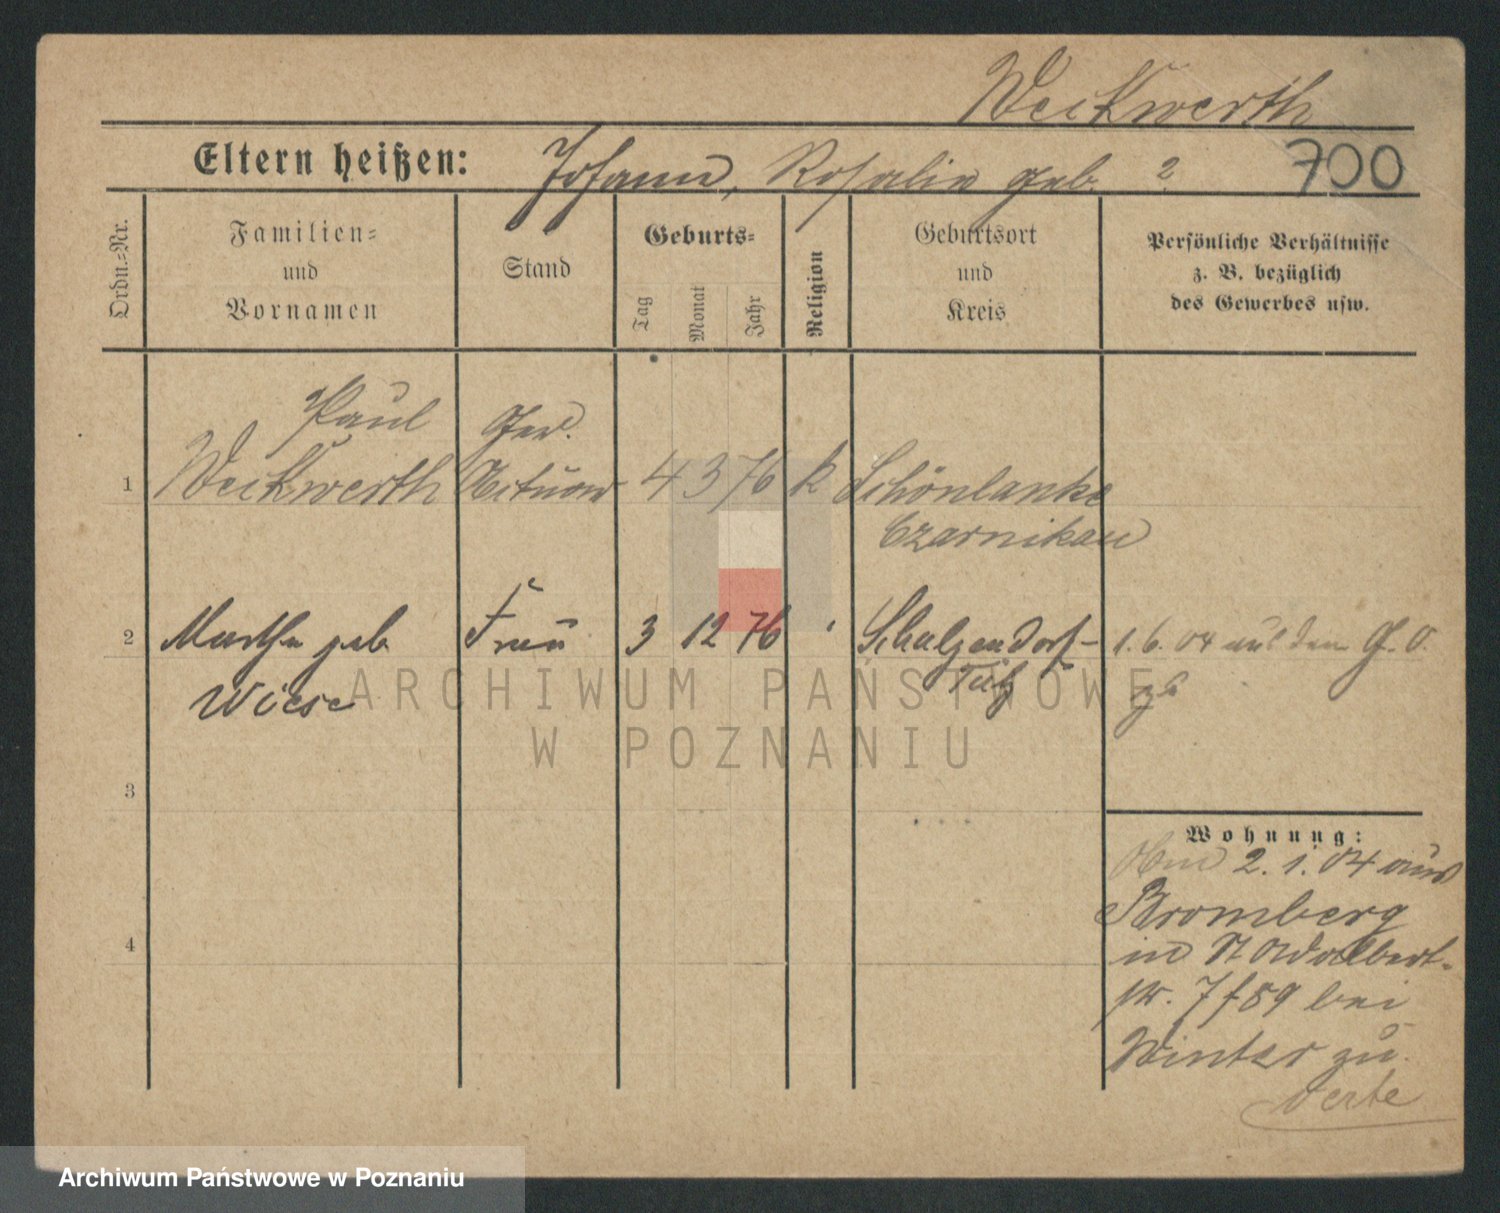 Weckwerth
Eltern heißen: Johann, Rosalie geb. ?
700
Ordn.-Nr.
Familien-
und
Vornamen
Stand
Geburts-
Tag
Monat
Jahr
Religion
Geburtsort
und
Kreis
Persönliche Verhältnisse
z. B. bezüglich
des Gewerbes usw.
Paul Ger.
1 Weckwerth Aktuar 4 3 76 k Schönlanke
Czarnikau
2 Martha geb Frau 3 12 76 Schulzendorf 1. 6. 04 aus dem G. O.
Wiese
ARCHIWUM PAŃSTWOWE
W POZNANIU
3
Wohnung:
2. 1. 04 aus
Bromberg
4
in St Adalbert-
str. 7 bei
Winter zu.
Archiwum Państwowe w Poznaniu